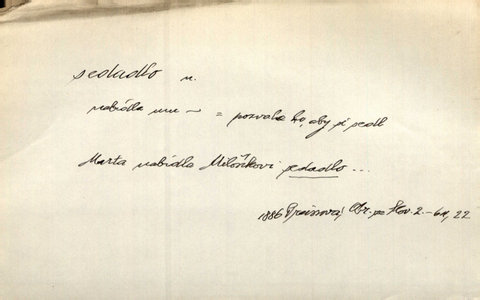 sedadlo n.
nabídla mu ~ = pozvala ho, aby si sedl
Marta nabídla Miloškovi sedadlo ...
1886 Preissová, Obr. ze Slov. 2.-64, 22